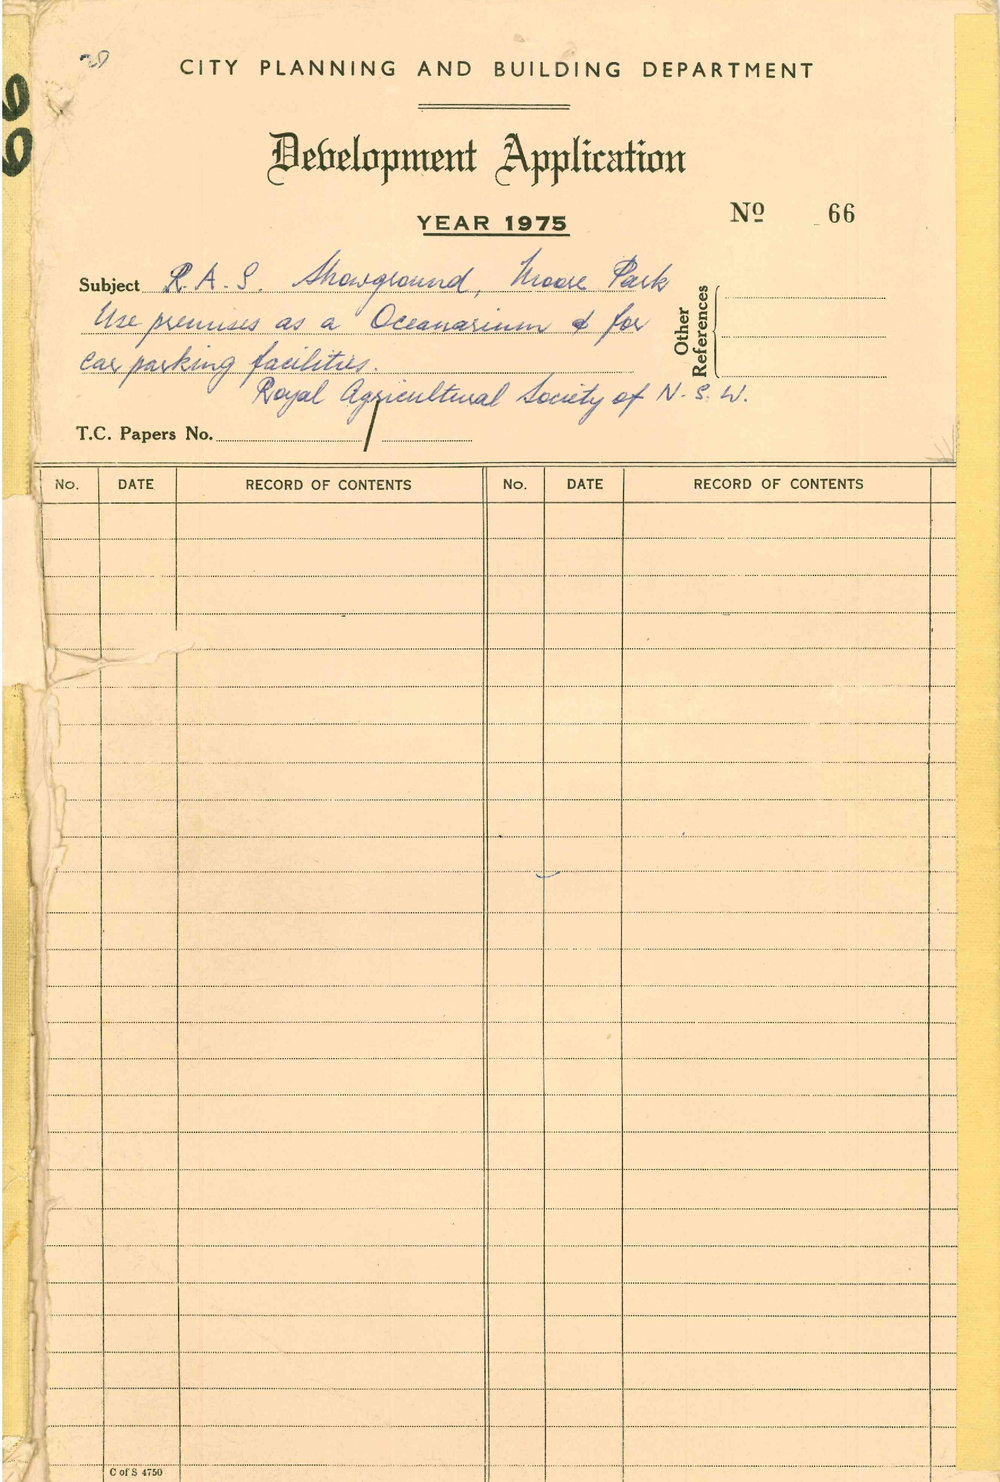 CITY PLANNING AND BUILDING DEPARTMENT
Development Application
YEAR 1975
Nº 66
Subject R.A.S. Showground, Moore Park
Use premises as a Oceanarium & for
car parking facilities.
Royal Agricultural Society of N.S.W.
Other References
T.C. Papers No. /
No. DATE RECORD OF CONTENTS No. DATE RECORD OF CONTENTS
C of S 4750